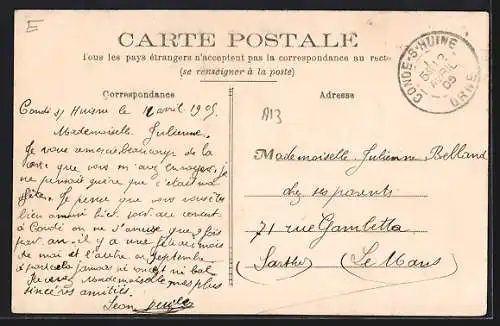 E
CARTE POSTALE
Tous les pays étrangers n'acceptent pas la correspondance au recto
(se renseigner à la poste)
Correspondance
Condé s/ Huisne le 12 avril 1905
Mademoiselle Julienne.
Je vous remercie beaucoup de la
carte que vous m'avez envoyée, je
ne pensait guère que c'était ma
fête. Je pense que vous vous êtes
bien amusé hier soir au concert
à Condé on ne s'amuse que 2 fois
par an. il y a une fête au mois
de mai et l'autre en septembre
à part cela jamais ni concert ni bal
Recevez Mademoiselle mes plus
sincères amitiés.
Leon
CONDÉ-S-HUINE
12
AVRIL
05
ORNE
A13
Adresse
Mademoiselle Julienne Belland
chez ses parents
71 rue Gambetta
(Sarthe) (Le Mans)